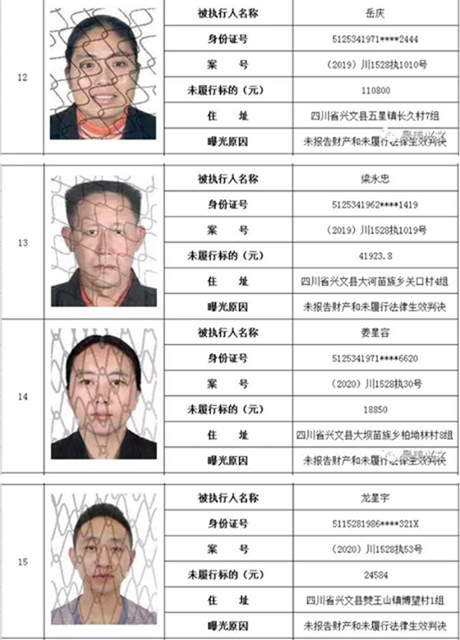 12
被执行人名称 岳庆
身份证号 5125341971****2444
案 号 （2019）川1528执1010号
未履行标的（元） 110800
住 址 四川省兴文县五星镇长久村7组
曝光原因 未报告财产和未履行法律生效判决
13
被执行人名称 梁永忠
身份证号 5125341962****1419
案 号 （2019）川1528执1019号
未履行标的（元） 41923.8
住 址 四川省兴文县大河苗族乡关口村4组
曝光原因 未报告财产和未履行法律生效判决
14
被执行人名称 姜星容
身份证号 5125341971****6620
案 号 （2020）川1528执30号
未履行标的（元） 18850
住 址 四川省兴文县大坝苗族乡柏坳林村8组
曝光原因 未报告财产和未履行法律生效判决
15
被执行人名称 龙星宇
身份证号 5115281986****321X
案 号 （2020）川1528执53号
未履行标的（元） 24584
住 址 四川省兴文县僰王山镇博望村1组
曝光原因 未报告财产和未履行法律生效判决